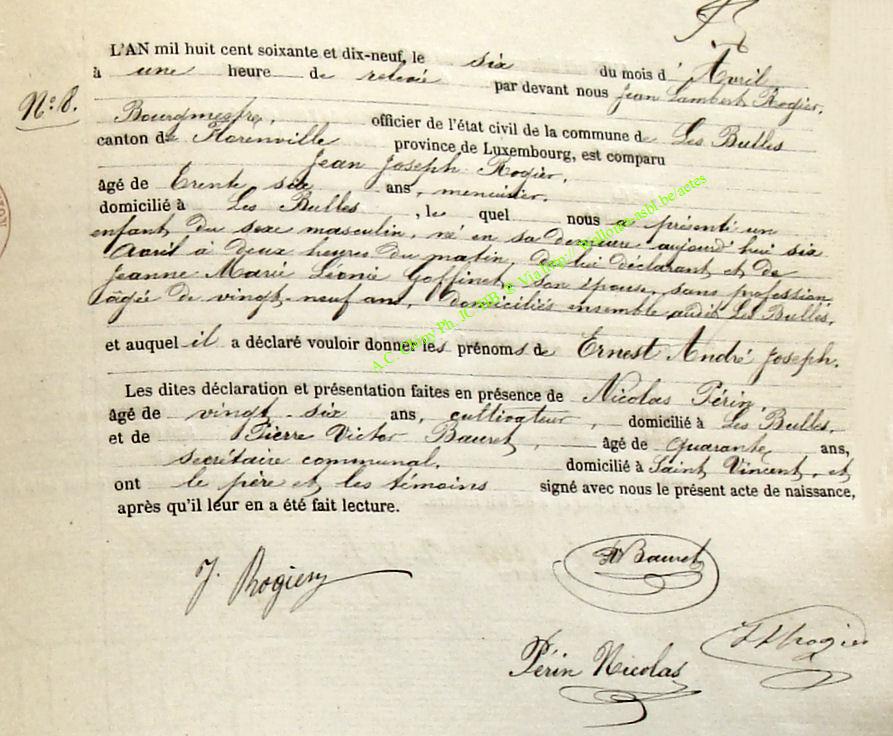 L'AN mil huit cent soixante et dix-neuf, le six du mois d'Avril
à une heure de relevée par devant nous Jean Lambert Rogier,
N°: 8.
Bourgmestre, officier de l'état civil de la commune de Les Bulles
canton de Florenville province de Luxembourg, est comparu
Jean Joseph Rogier,
âgé de Trente six ans, menuisier,
domicilié à Les Bulles, le quel nous a présenté un
enfant du sexe masculin, né en sa demeure aujourd'hui six
Avril à deux heures du matin, de lui déclarant et de
Jeanne Marie Léonie Goffinet, son épouse, sans profession,
âgée de vingt-neuf ans, domiciliés ensemble audit Les Bulles,
et auquel il a déclaré vouloir donner les prénoms de Ernest André Joseph.
Les dites déclaration et présentation faites en présence de Nicolas Périn,
âgé de vingt six ans, cultivateur, domicilié à Les Bulles,
et de Pierre Victor Bauret, âgé de quarante ans,
secrétaire communal, domicilié à Saint Vincent, et
ont le père et les témoins signé avec nous le présent acte de naissance,
après qu'il leur en a été fait lecture.
J. Rogier
Bauret
Périn Nicolas
Rogier